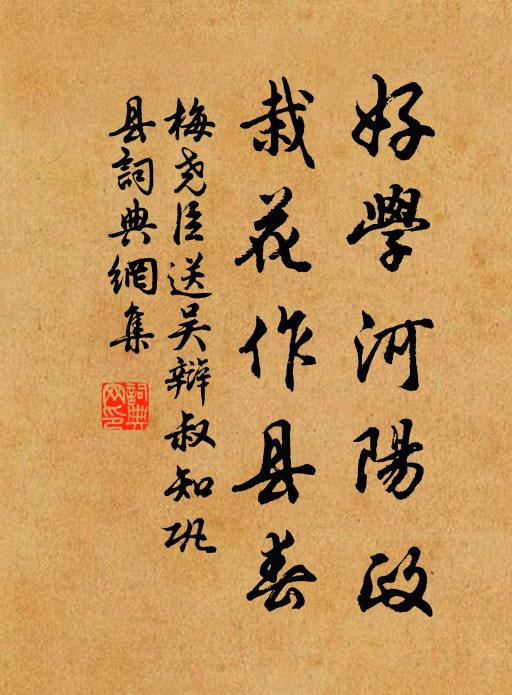 好學河陽政
栽花作县春
梅尧臣送吴辩叔知巩
县詞典網集
詞典
网印